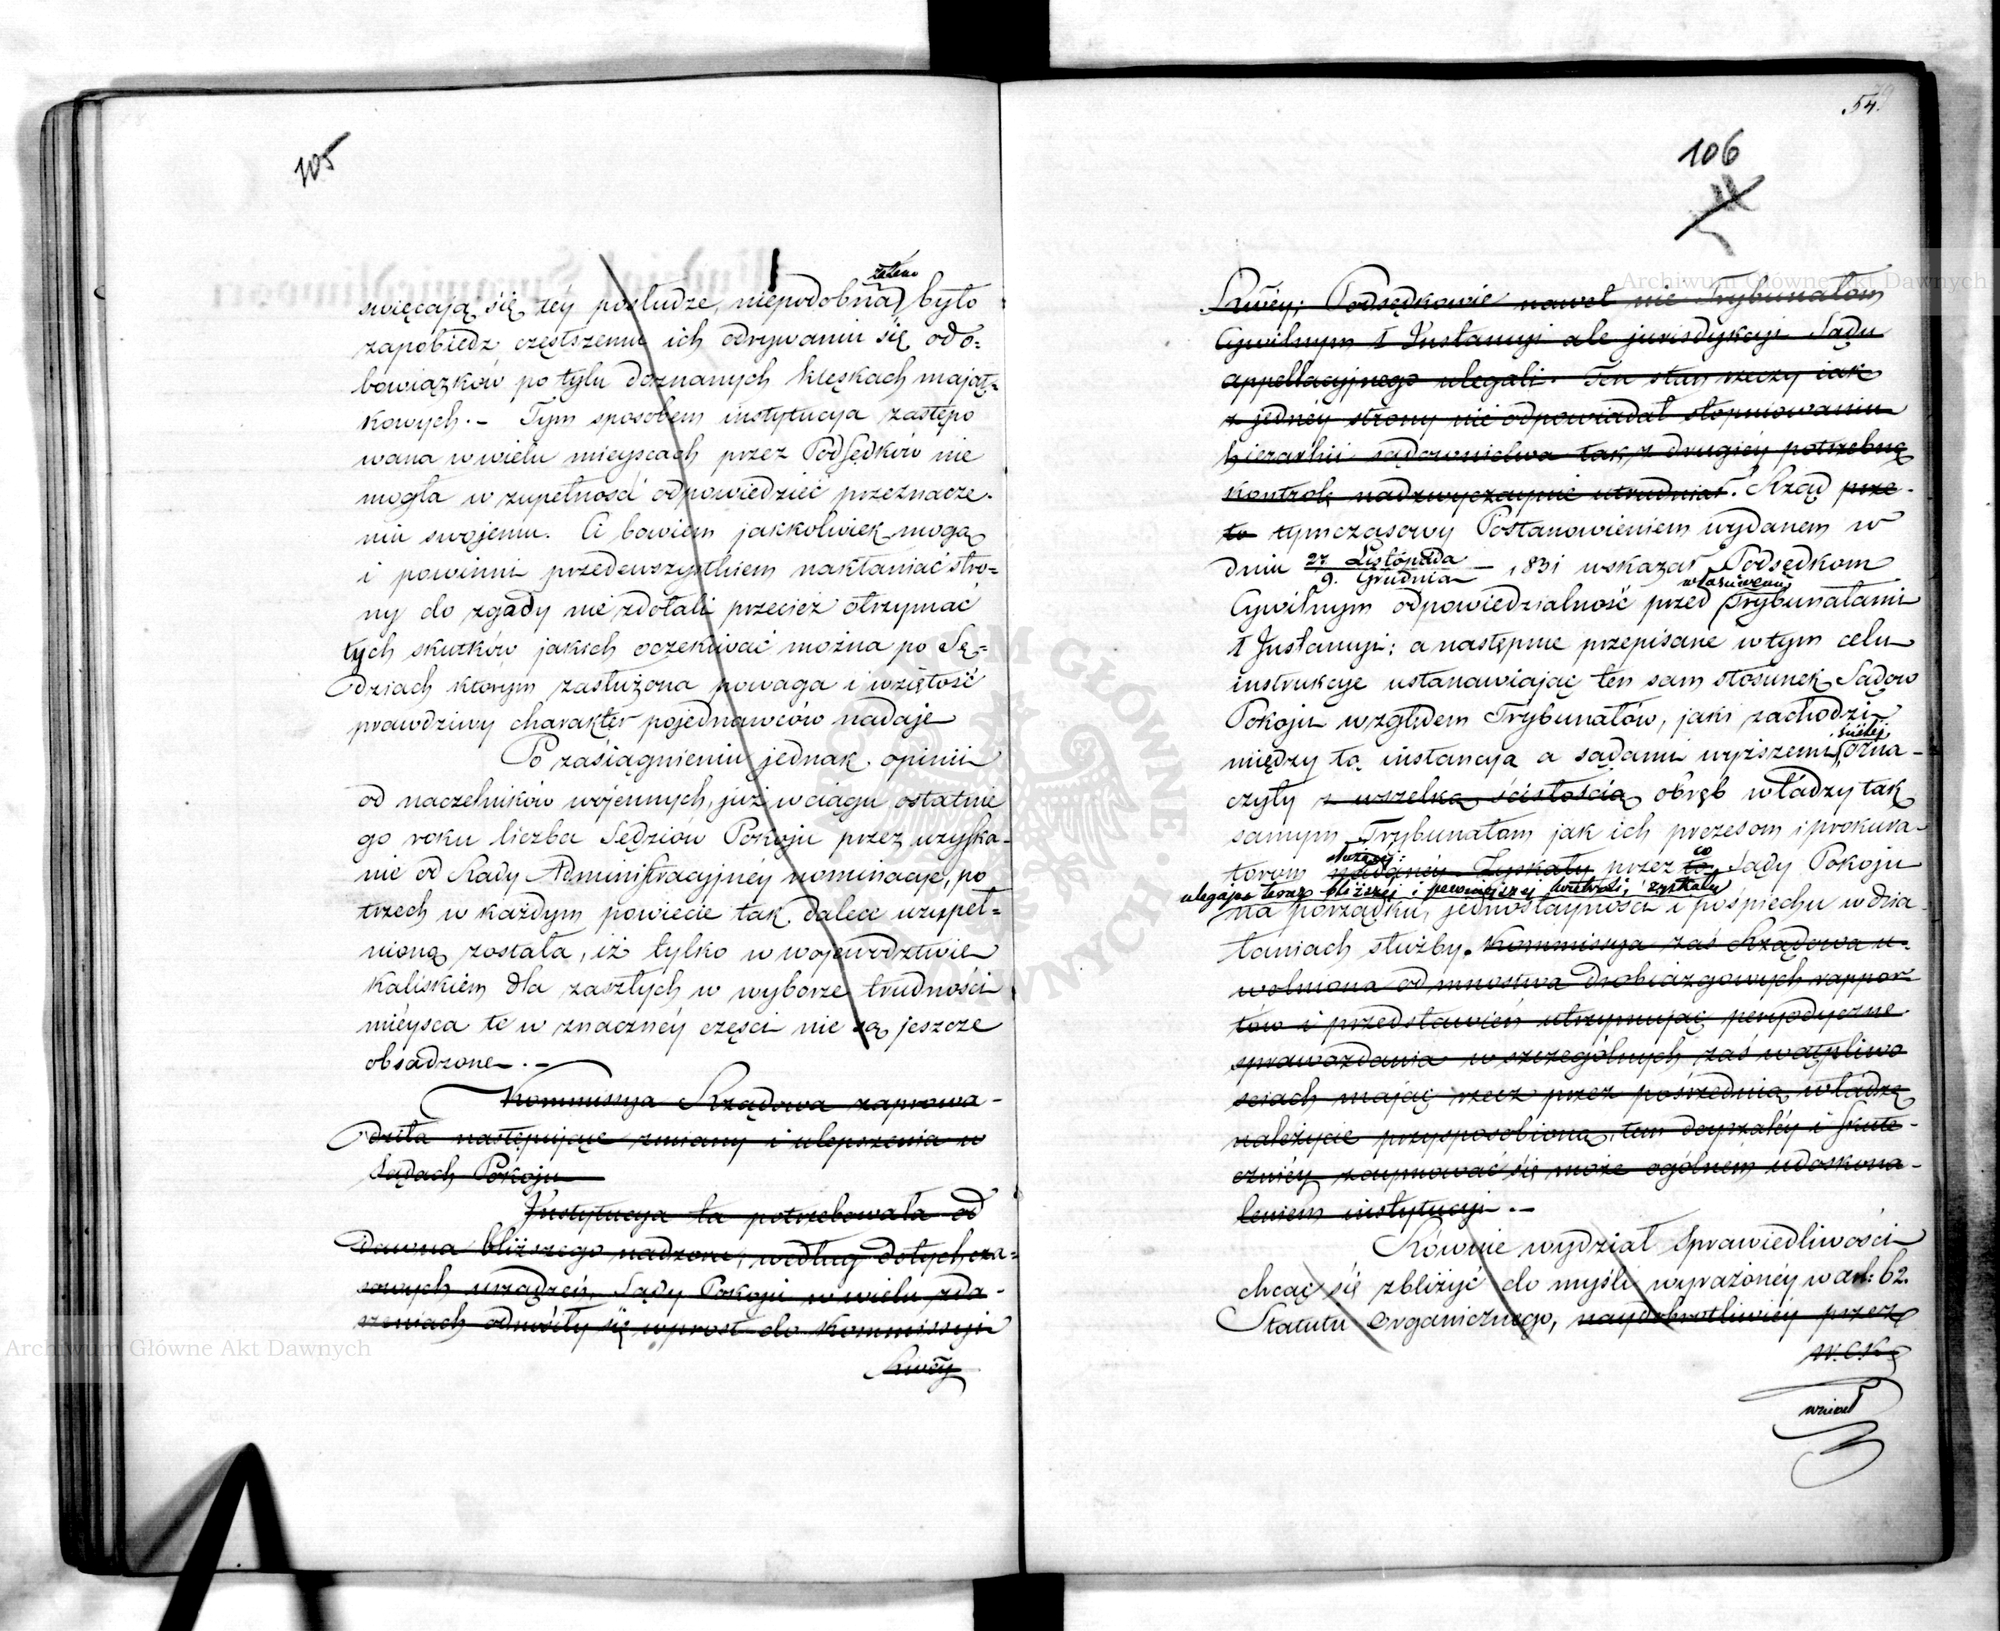 105
zatem
święcają się téy posłudze, niepodobna było
zapobiedz częstszemu ich odrywaniu się od o=
bowiązków po tylu doznanych klęskach mająt=
kowych. – Tym sposobem instytucya zastępo
wana w wielu mieyscach przez Podsędków nie
mogła w zupełności odpowiedzieć przeznacze-
niu swojemu. A bowiem jakkolwiek mogą
i powinni przedewszystkiem nakłaniać stro=
ny do zgody nie zdołali przecież otrzymać
tych skutków jakich oczekiwać można po Sę=
dziach którym zasłużona powaga i wziętość
prawdziwy charakter pojednawców nadaje
Po zasiągnieniu jednak opinii
od naczelników wojennych, już w ciągu ostatnie
go roku liczba Sędziów Pokoju przez uzyska-
nie od Rady Administracyjnéy nominacye, po
trzech w każdym powiecie tak dalece uzupeł=
nioną została, iż tylko w województwie
Kaliskiem dla zaszłych w wyborze trudności
miéysca te w znacznéy części nie są jeszcze
obsadzone. –
Kommissya Rządowa zaprowa-
dziła następujące zmiany i ulepszenia w
Sądach Pokoju
Instytucya ta potrzebowała od
dawna bliższego nadzoru, według dotychcza=
sowych urządzeń, Sądy Pokoju w wielu zda-
rzeniach odnosiły się wprost do Kommissyi
Rwéy
54
106
Rwéy; Podsędkowie nawet nie Trybunałom
Cywilnym I Instancyi ale jurisdykcyi Sądu
appellacyjnego ulegali. Ten stan rzeczy jak
z jednéy strony nie odpowiadał stopniowaniu
hierarhii sądownictwa tak z drugiéy potrzebną
kontrolę nadzwyczaynie utrudniał. Rząd prze-
to tymczasowy Postanowieniem wydanem w
dniu 27 Listopada / 9. Grudnia – 1831 wskazał Podsędkom
właściwemi
Cywilnym odpowiedzialność przed Trybunałami
I Instancyi; a następnie przepisane w tym celu
instrukcye ustanawiając ten sam stosunek Sądow
Pokoju względem Trybunałów, jaki zachodzi
ściśley
między tą instancyą a sądami wyższemi, ozna-
czyły z wszelką ścisłością obręb władzy tak
samym Trybunałom jak ich prezesom i prokura-
służącéy: co
torow nadanéy. Zyskały przez to Sądy Pokoju
ulegając teraz bliższej i pewniejszej kontroli, zyskały
na porządku, jednostayności i pośpiechu w dzia-
łaniach służby. Kommissya zaś Rządowa u-
wolniona od mnóstwa drobiazgowych rappor
tów i przedstawień utrzymując peryodyczne
sprawozdania w szczególnych zaś wątpliwo
ściach mając rzecz przez pośrednią władzę
należycie przysposobioną, tem doyrzaléy i skute-
cznéy zaymować się może ogólnem udoskona-
leniem instytucyi. –
Równie wydział Sprawiedliwości
chcąc się zbliżyć do myśli wyrażonéy w art: 62.
Statutu Organicznego, naydobrotliwiéy przez
W. C. K.